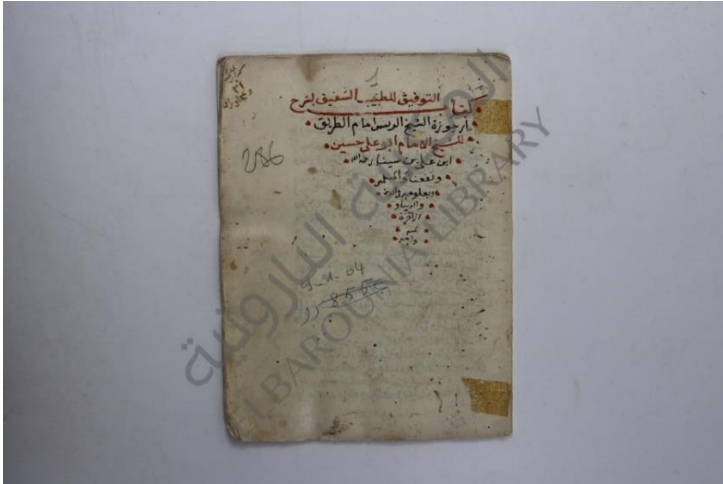 كتاب التوفيق للطبيب الشفيق لشرح
أرجوزة الشيخ الريس امام الطريق
للشيخ الامام ابو على حسين
ابن على بن سينا رحمه الله
ونفعنا والمسلمين
بعلومه
والدنيا و
الآخرة
286
9-1-04
المكتبة البارونية
ELBAROUNIA LIBRARY